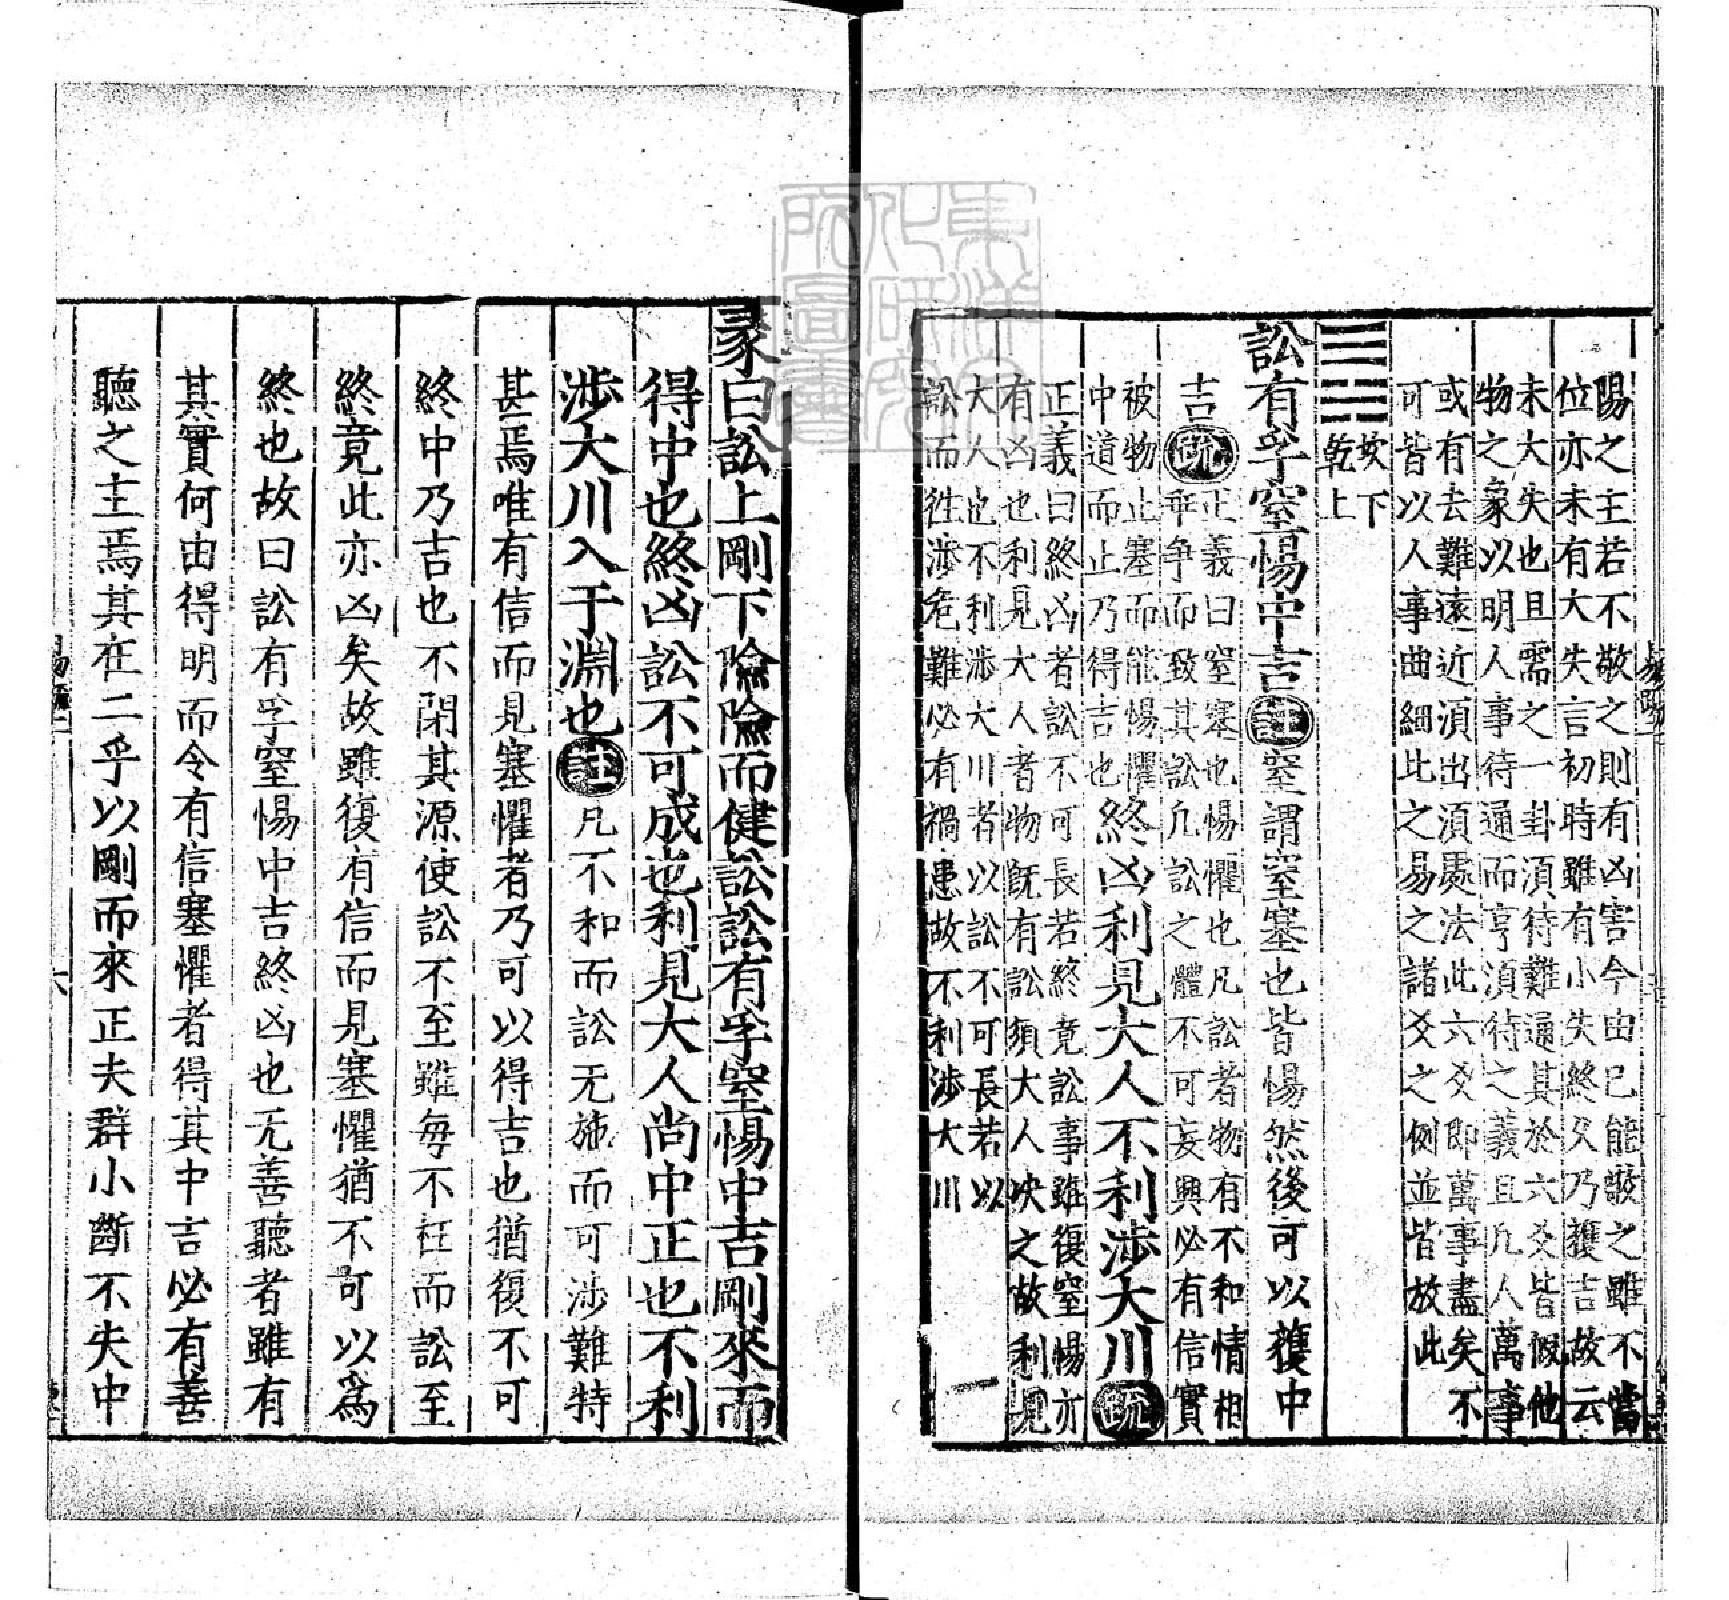 陽之主若不敬之則有凶害今由已能敬之雖不當
位亦未有大失言初時雖有小失終久乃獲吉故云
未大失也且需之一卦須待難通其於六爻皆假他
物之象以明人事待通而亨須待之義且凡人萬事
或有去難遠近須出須處法此六爻即萬事盡矣不
可皆以人事曲細比之易之諸爻之例並皆放此
坎下
乾上
訟有孚窒惕中吉註窒謂窒塞也皆惕然後可以獲中
吉疏正義曰窒塞也惕懼也凡訟者物有不和情相
乖争而致其訟凡訟之體不可妄興必有信實
被物止塞而能惕懼
中道而止乃得吉也終凶利見大人不利涉大川疏
正義曰終凶者訟不可長若終竟訟事雖復窒惕亦
有凶也利見大人者物既有訟須大人決之故利見
大人也不利涉大川者以訟不可長若以
訟而往涉危難必有禍患故不利涉大川
彖曰訟上剛下險險而健訟訟有孚窒惕中吉剛來而
得中也終凶訟不可成也利見大人尚中正也不利
涉大川入于淵也註凡不和而訟无施而可涉難特
甚焉唯有信而見塞懼者乃可以得吉也猶復不可
終中乃吉也不閉其源使訟不至雖每不枉而訟至
終竟此亦凶矣故雖復有信而見塞懼猶不可以爲
終也故曰訟有孚窒惕中吉終凶也无善聽者雖有
其實何由得明而令有信塞懼者得其中吉必有善
聽之主焉其在二乎以剛而來正夫群小斷不失中
六